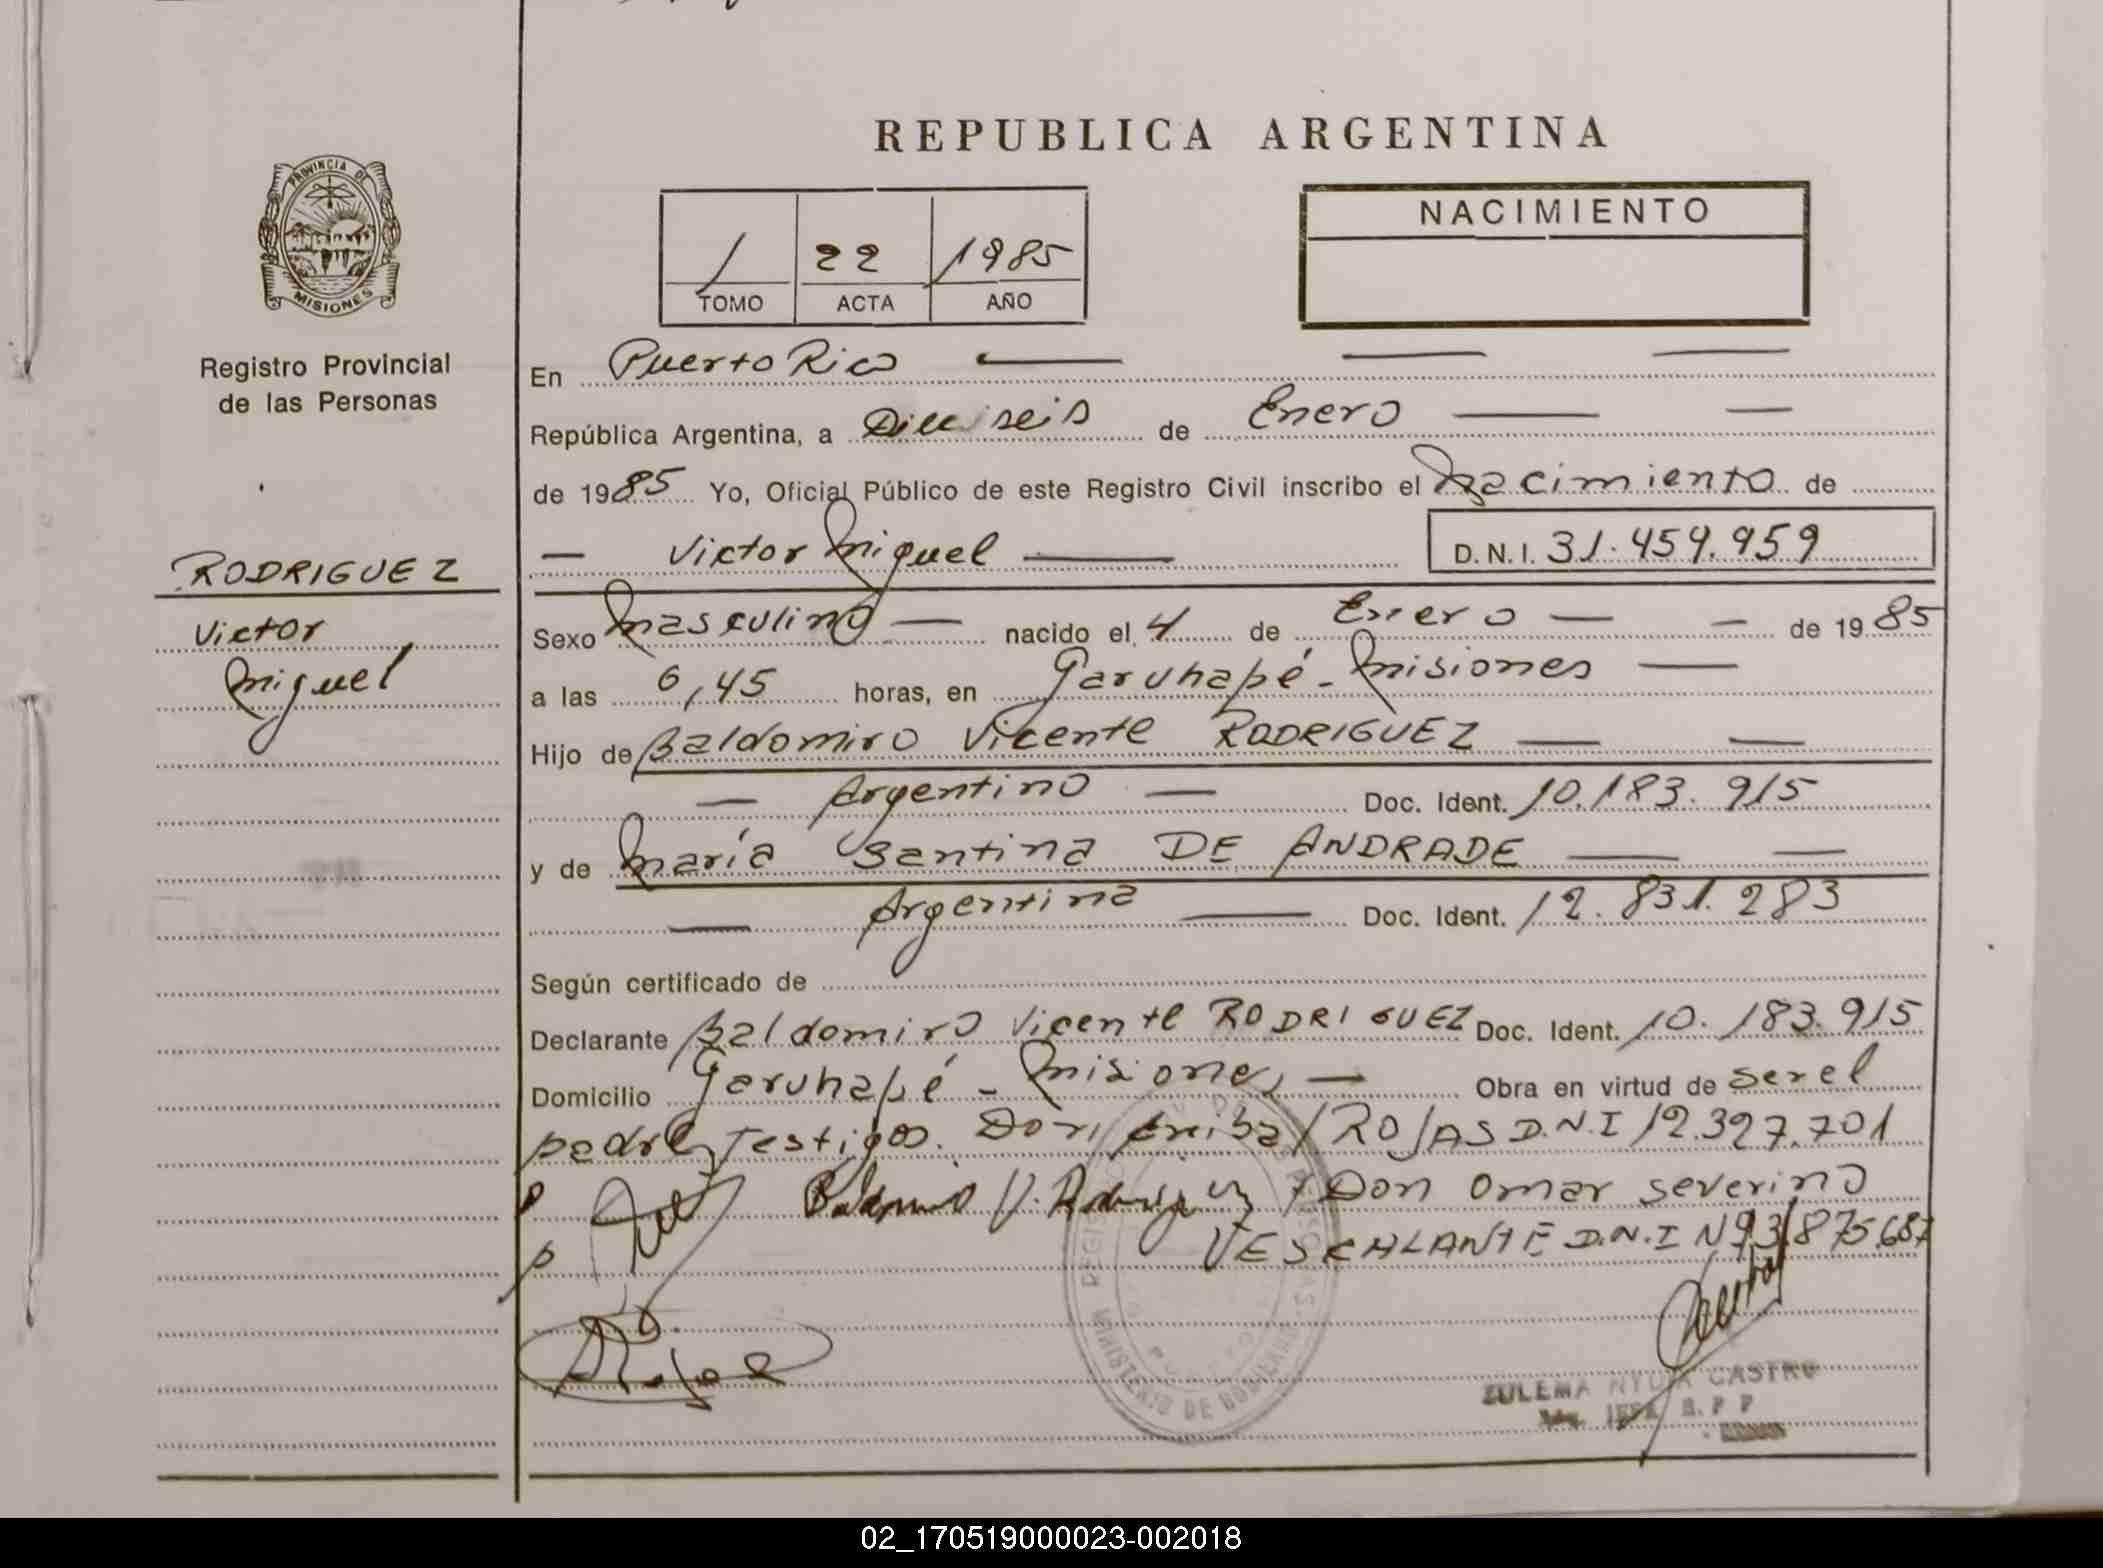 REPUBLICA ARGENTINA
PROVINCIA DE MISIONES
Registro Provincial
de las Personas
1 22 1985
TOMO ACTA AÑO
NACIMIENTO
En Puerto Rico
República Argentina, a Dieciseis de Enero
de 1985 Yo, Oficial Público de este Registro Civil inscribo el Nacimiento de
Victor Miguel D.N.I. 31.459.959
RODRIGUEZ
Victor
Miguel
Sexo Masculino nacido el 4 de Enero de 1985
a las 6,45 horas, en Garuhapé - Misiones
Hijo de Baldomiro Vicente RODRIGUEZ
Argentino Doc. Ident. 10.183.915
y de María Santina DE ANDRADE
Argentina Doc. Ident. 12.831.283
Según certificado de
Declarante Baldomiro Vicente RODRIGUEZ Doc. Ident. 10.183.915
Domicilio Garuhapé - Misiones Obra en virtud de ser el
padre Testigos. Don ROJAS D.N.I 12.327.701
Don Omar Severino
D.N.I Nº
ZULEMA NYDIA CASTRO
MINISTERIO DE GOBIERNO
02_170519000023-002018